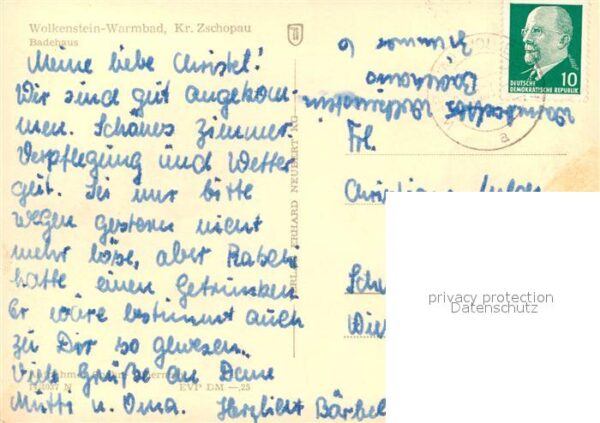 Wolkenstein-Warmbad, Kr. Zschopau
Badehaus
Meine liebe Christel!
Wir sind gut angekom-
men. Schönes Zimmer.
Verpflegung und Wetter
gut. Sei nur bitte
wegen gestern nicht
mehr böse, aber
hatte einen Getrunken.
Er wäre bestimmt auch
zu Dir so gewesen.
Viele Grüße an Deine
Mutti u. Oma. Herzlichst Bärbel
EVP DM —,25
ERHARD NEUBERT KG
Zimmer 6
Badehaus
Warmbad Wolkenstein
DEUTSCHE
DEMOKRATISCHE REPUBLIK
10
a
Frl.
privacy protection
Datenschutz